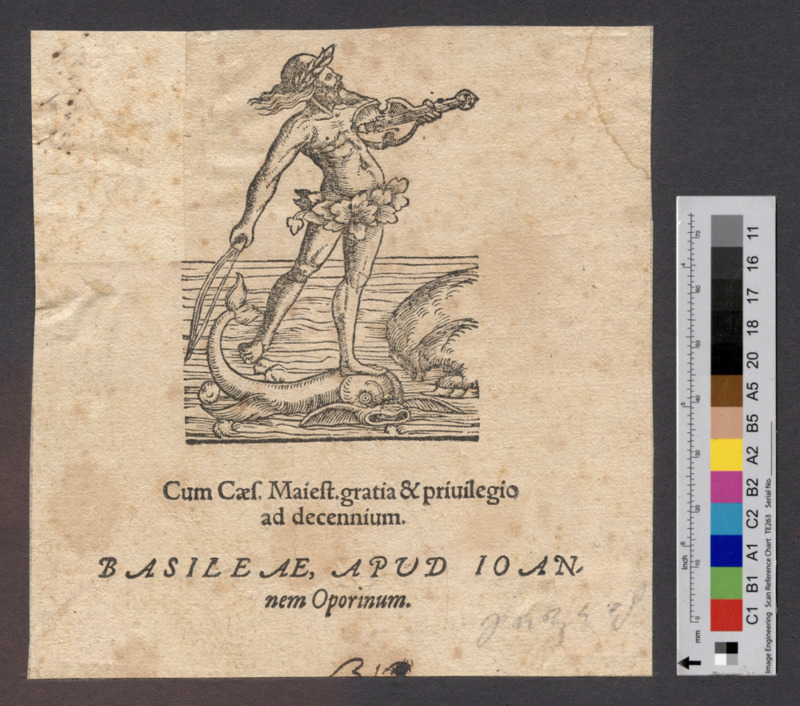 Cum Cæſ. Maieſt. gratia & priuilegio
ad decennium.
BASILEAE, APUD IOAN-
nem Oporinum.
C1 B1 A1 C2 B2 A2 B5 A5 20 18 17 16 11
Image Engineering Scan Reference Chart TE263 Serial No.
mm
inch